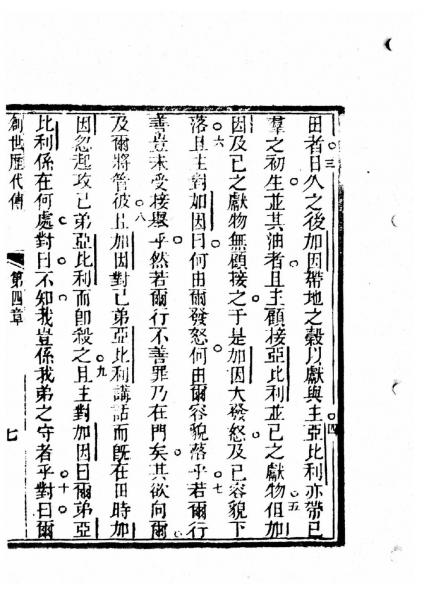 田者日久之後加因帶地之穀以獻與主亞比利亦帶已
三 四
羣之初生並其油者且主顧接亞比利並已之獻物但加
五
因及已之獻物無顧接之于是加因大發怒及已容貌下
六
落且主對加因曰何由爾發怒何由爾容貌落乎若爾行
七
善豈未受接舉乎然若爾行不善罪乃在門矣其欲向爾
八
及爾將管彼且加因對已弟亞比利講話而旣在田時加
因忽起攻已弟亞比利而卽殺之且主對加因曰爾弟亞
九
比利係在何處對曰不知我豈係我弟之守者乎對曰爾
十
創世歷代傳 第四章 七